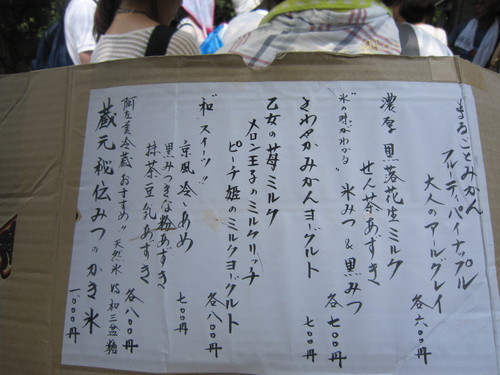 まるごとみかん
フルーティパイナップル
大人のアールグレイ
各六〇〇円
濃厚黒落花生ミルク
せん茶あずき
"氷の味がわかる" 氷みつ&黒みつ
各七〇〇円
さわやかみかんヨーグルト
七〇〇円
乙女の苺ミルク
メロン王子のミルクリッチ
ピーチ姫のミルクヨーグルト
各八〇〇円
"和"スイーツ!!
京風冷しあめ
七〇〇円
黒みつきな粉あずき
抹茶豆乳あずき
各八〇〇円
阿左美冷蔵おすすめ!! 天然氷 & 和三盆糖
蔵元秘伝みつのかき氷
一〇〇〇円